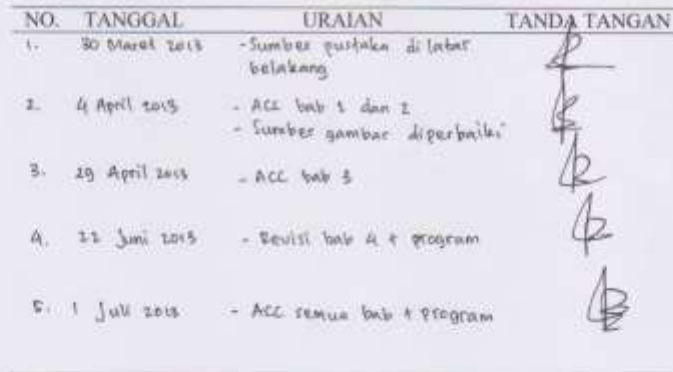 NO. TANGGAL URAIAN TANDA TANGAN
1. 30 Maret 2013 - Sumber pustaka di latar
belakang
2. 4 April 2013 - ACC bab 1 dan 2
- Sumber gambar diperbaiki
3. 29 April 2013 - ACC bab 3
4. 22 Juni 2013 - Revisi bab 4 + program
5. 1 Juli 2013 - ACC semua bab + program